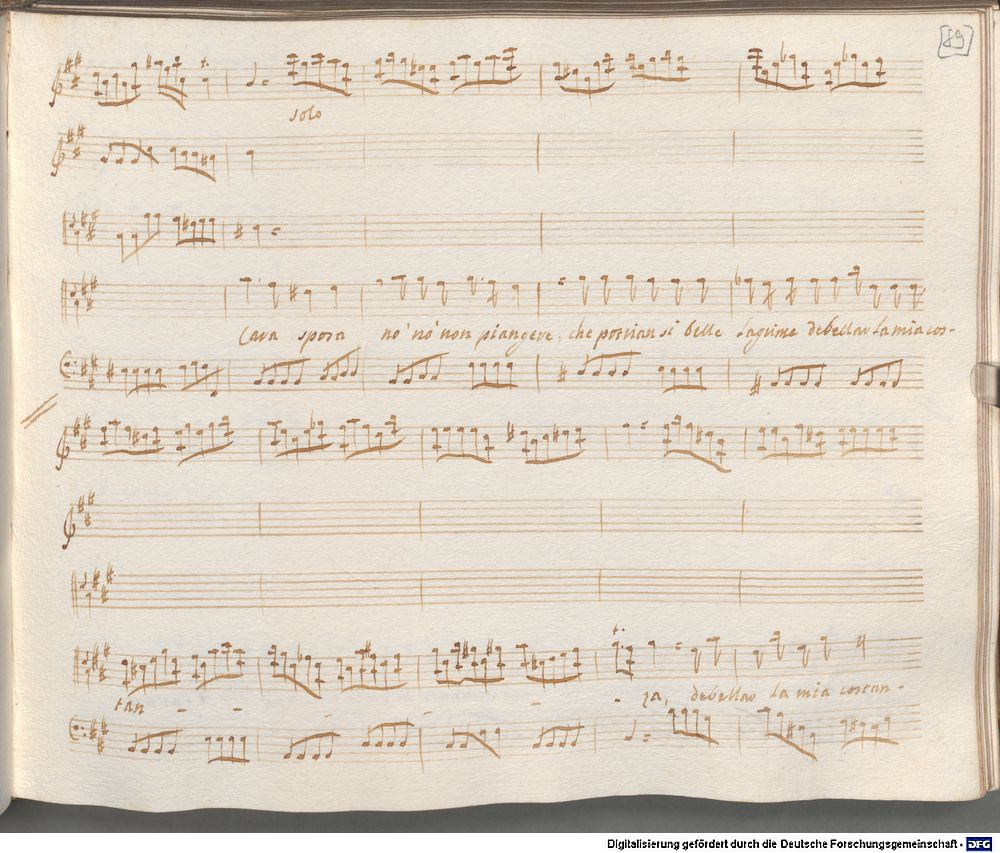 [89]
solo
Cara sposa no' no' non piangere, che potrian si belle lagrime debellar la mia cos-
tan - - - - - - - za, debellar la mia costan-
Digitalisierung gefördert durch die Deutsche Forschungsgemeinschaft - DFG